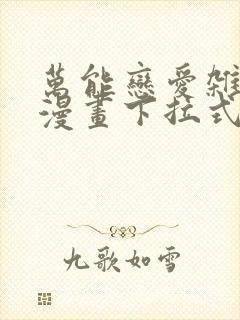 萬能戀愛雜
漫畫下拉式
九歌如雪